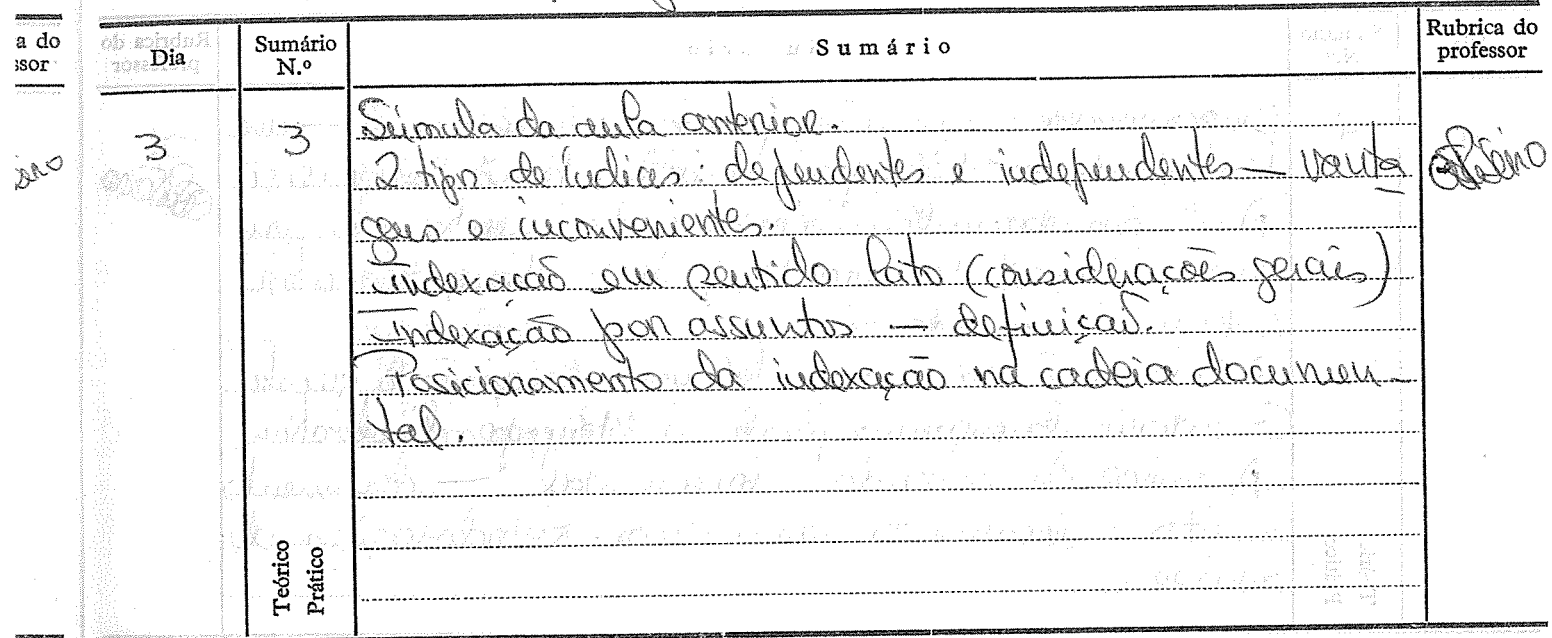 a do
ssor
Dia
Sumário
N.º
Sumário
Rubrica do
professor
3
3
Súmula da aula anterior.
2 tipos de índices: dependentes e independentes — vanta
gens e inconvenientes.
Indexação em sentido lato (considerações gerais)
Indexação por assuntos — definição.
Posicionamento da indexação na cadeia documen-
tal.
Teórico
Prático